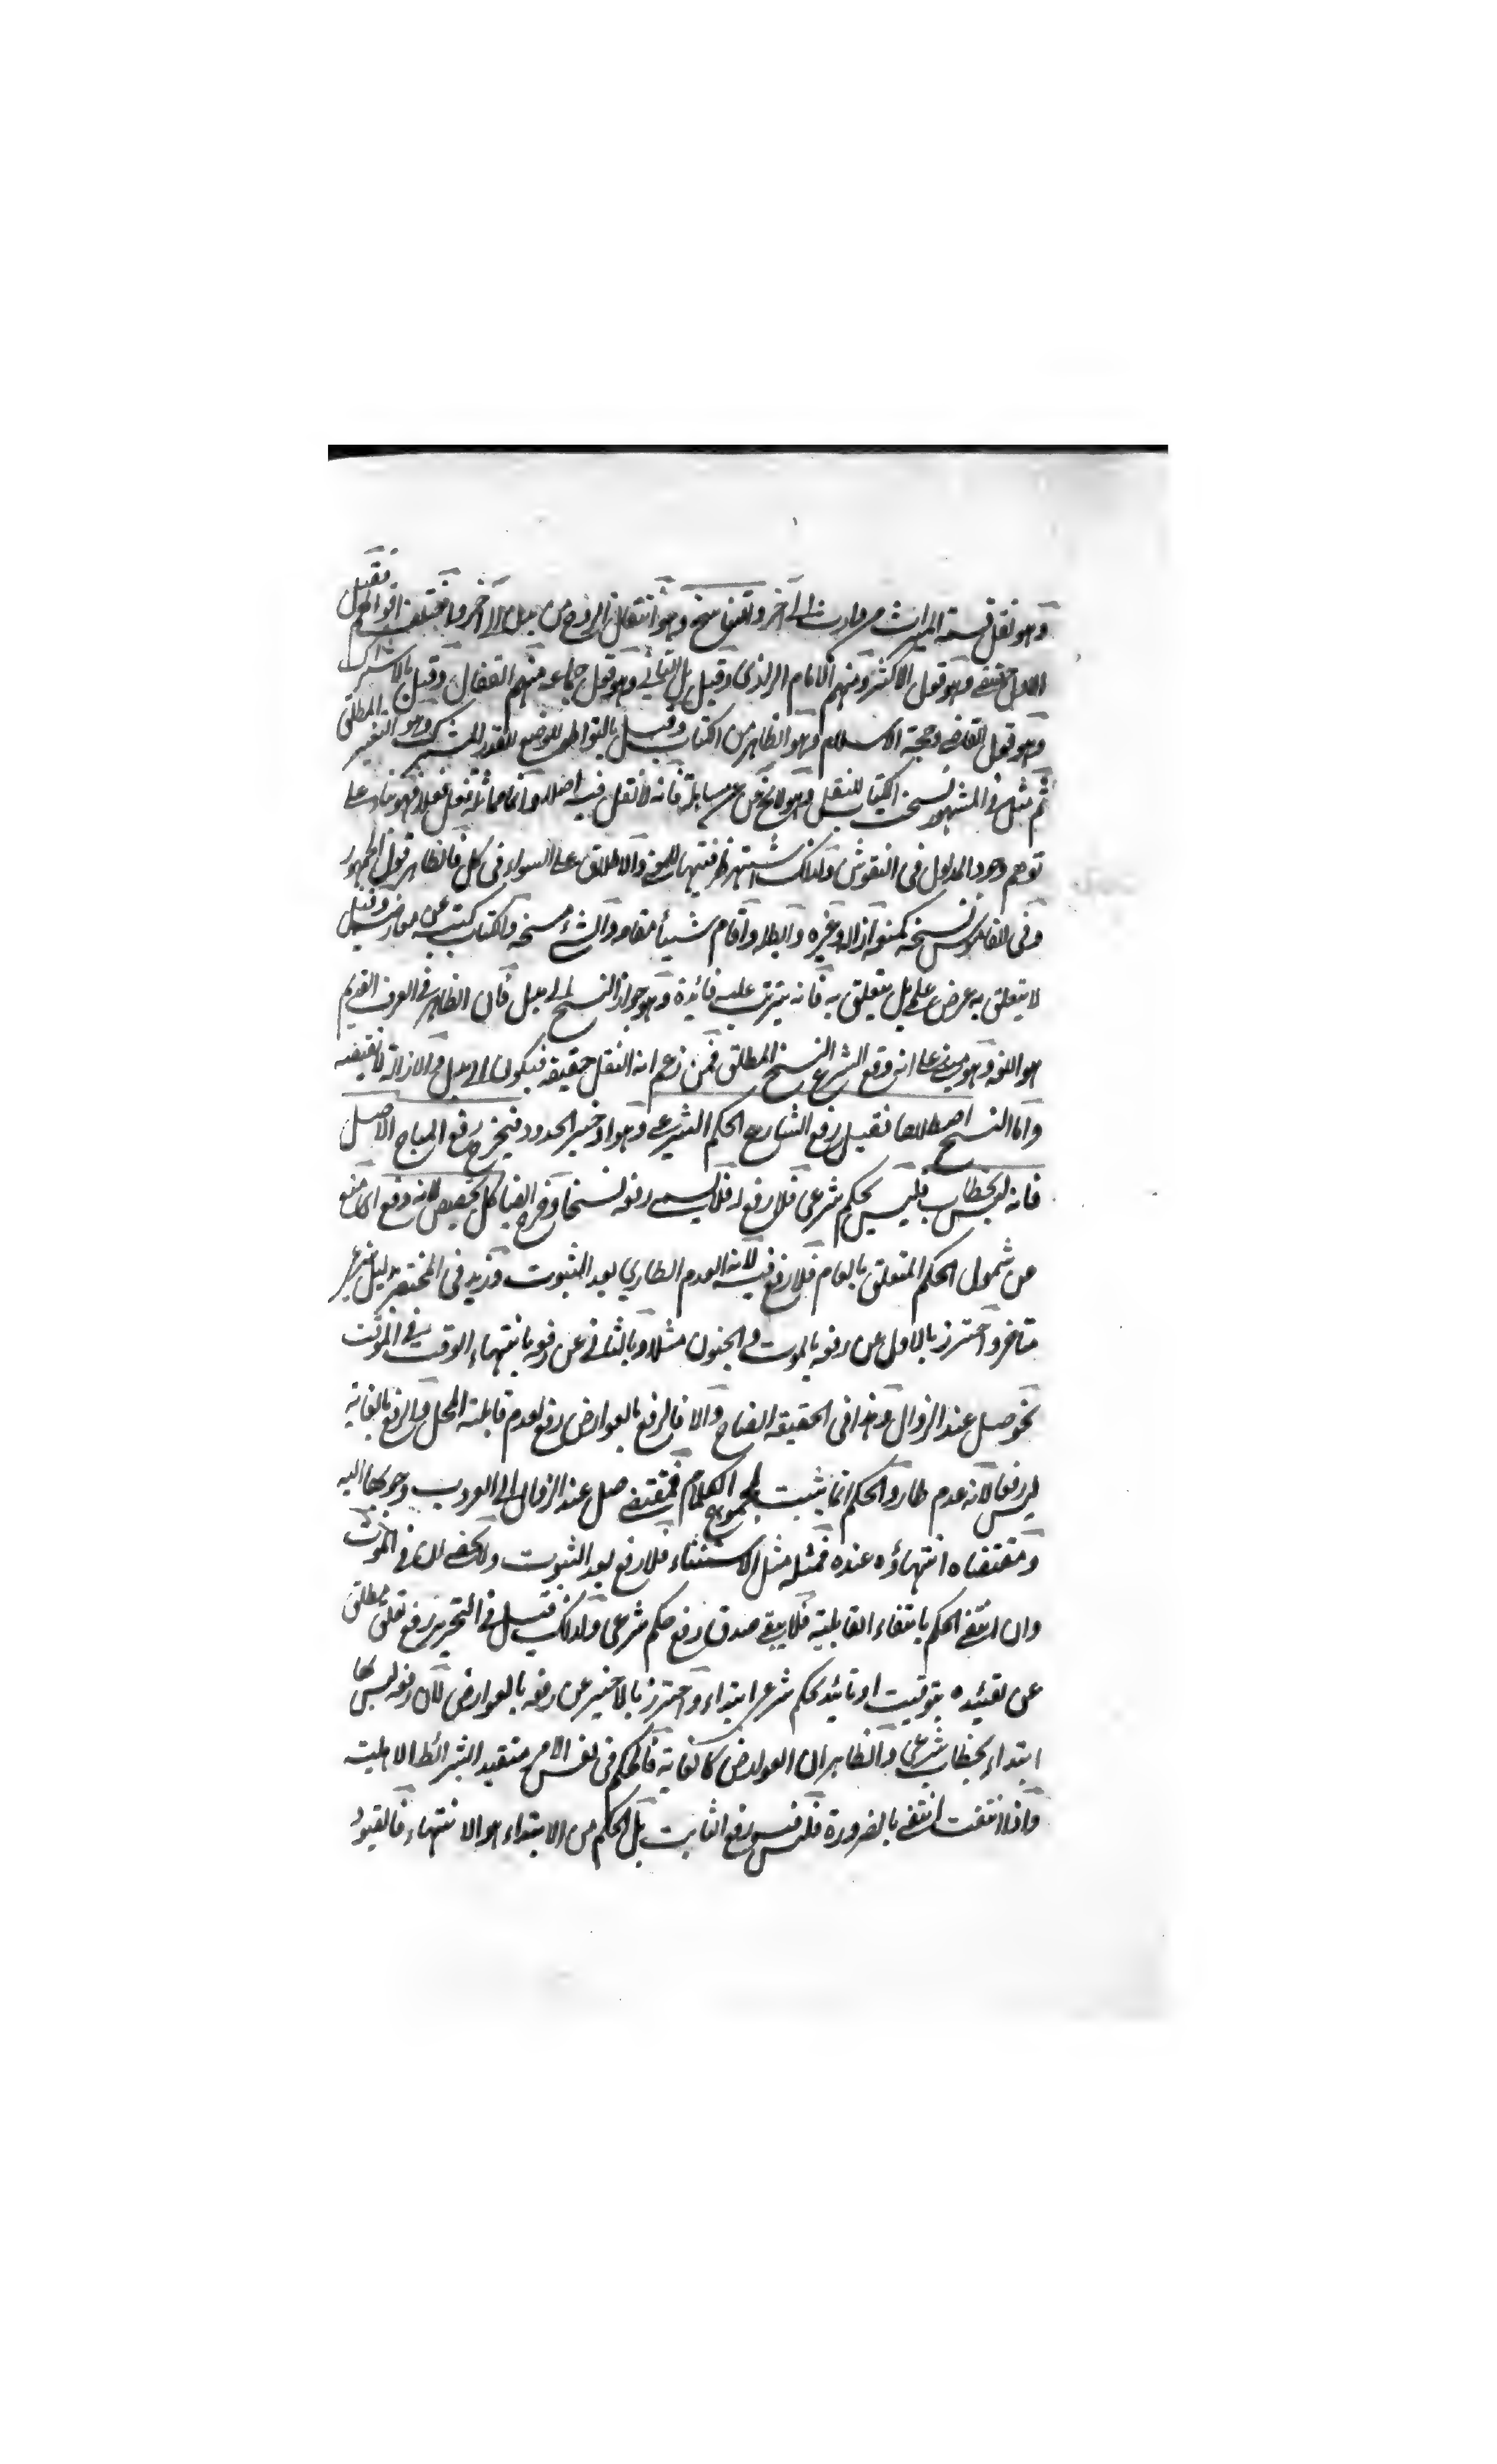 وهو نقل قسمة الميراث من وارث الى آخر والتناسخ وهو انتقال الروح من بدن الى آخر واختلف اقوالهم فقيل
الاول حقيقة وهو قول الاكثر ومنهم الامام الرازي وقيل بل الثاني وهو قول جماعة منهم القفال وقيل بالاشتراك
وهو قول القاضي وحجة الاسلام وهو الظاهر من الكتاب وقيل بالتواطي للوضع للقدر المشترك وهو التغيير المطلق
ثم مثل في المشهور نسخت الكتاب للنقل وهو لا يخ عن مسابلة فانه لا نقل فيه اصلا وانما مماثلة فعل فعلا فهو بناء على
توهم وجود المدلول في النقوش ولذلك اشتهر ظرفيتها للمعنى والاطلاق على السواء في كل فالظاهر قول الجمهور
وفي القاموس نسخه كمنعه ازاله وغيره وابطله واقام شيأ مقامه والشئ مسخه والكتاب كتبه عن معارضه وقيل
لا يتعلق به غرض علمي بل يتعلق به فانه يترتب عليه فائدة وهو جواز النسخ لا الى بدل فان الظاهر في العرف القديم
هو اللغة وهو مبني على انه وقع في الشرع النسخ المطلق فمن زعم انه النقل حقيقة فيكون الى بدل والازالة لا تقتضيه
واما النسخ اصطلاحا فقيل رفع الشارع الحكم الشرعي وهو اخير الحدود فيخرج رفع المباح الاصل
فانه ليس بخطاب فليس بحكم شرعي فلا رفع له فلا يسمى رفعه نسخا وخرج ايضا كل تخصيص لانه دفع اي منع
عن شمول الحكم المتعلق بالعام فلا رفع فيه لانه العدم الطاري بعد الثبوت وزيد في المختصر بدليل شرعي
متأخر واحترز بالاول عن رفعه بالموت والجنون مثلا وبالثاني عن رفعه بانتهاء الوقت في الموقت
نحو صل عند الزوال وهذا في الحقيقة ايضاح والا فالرفع بالعوارض رفع لعدم قابلية المحل والرفع بالغاية
ليس رفعا لانه عدم طار والحكم انما يثبت بمجموع الكلام فمقتضى صل عند الزوال الى الغروب وجوبها اليه
ومقتضاه انتهاؤه عنده فمثله مثل الاستثناء فلا رفع بعد الثبوت ولا يخفى ان في الموت
وان انتفى الحكم بانتفاء القابلية فلا يبقى صدق رفع حكم شرعي ولذلك قيل في التحرير رفع تعلق مطلق
عن تقييده بتوقيت او تابيد لحكم شرعي ابتداء واحترز بالاخير عن رفعه بالعوارض لان رفعه ليس بها
ابتداء بخطاب شرعي والظاهر ان العوارض كالغاية فالحكم في نفس الامر متقيد بشرائط الاهلية
واذا انتفت انتفى بالضرورة فليس فيه رفع الثابت بل الحكم من الابتداء هو الانتهاء فالقيود